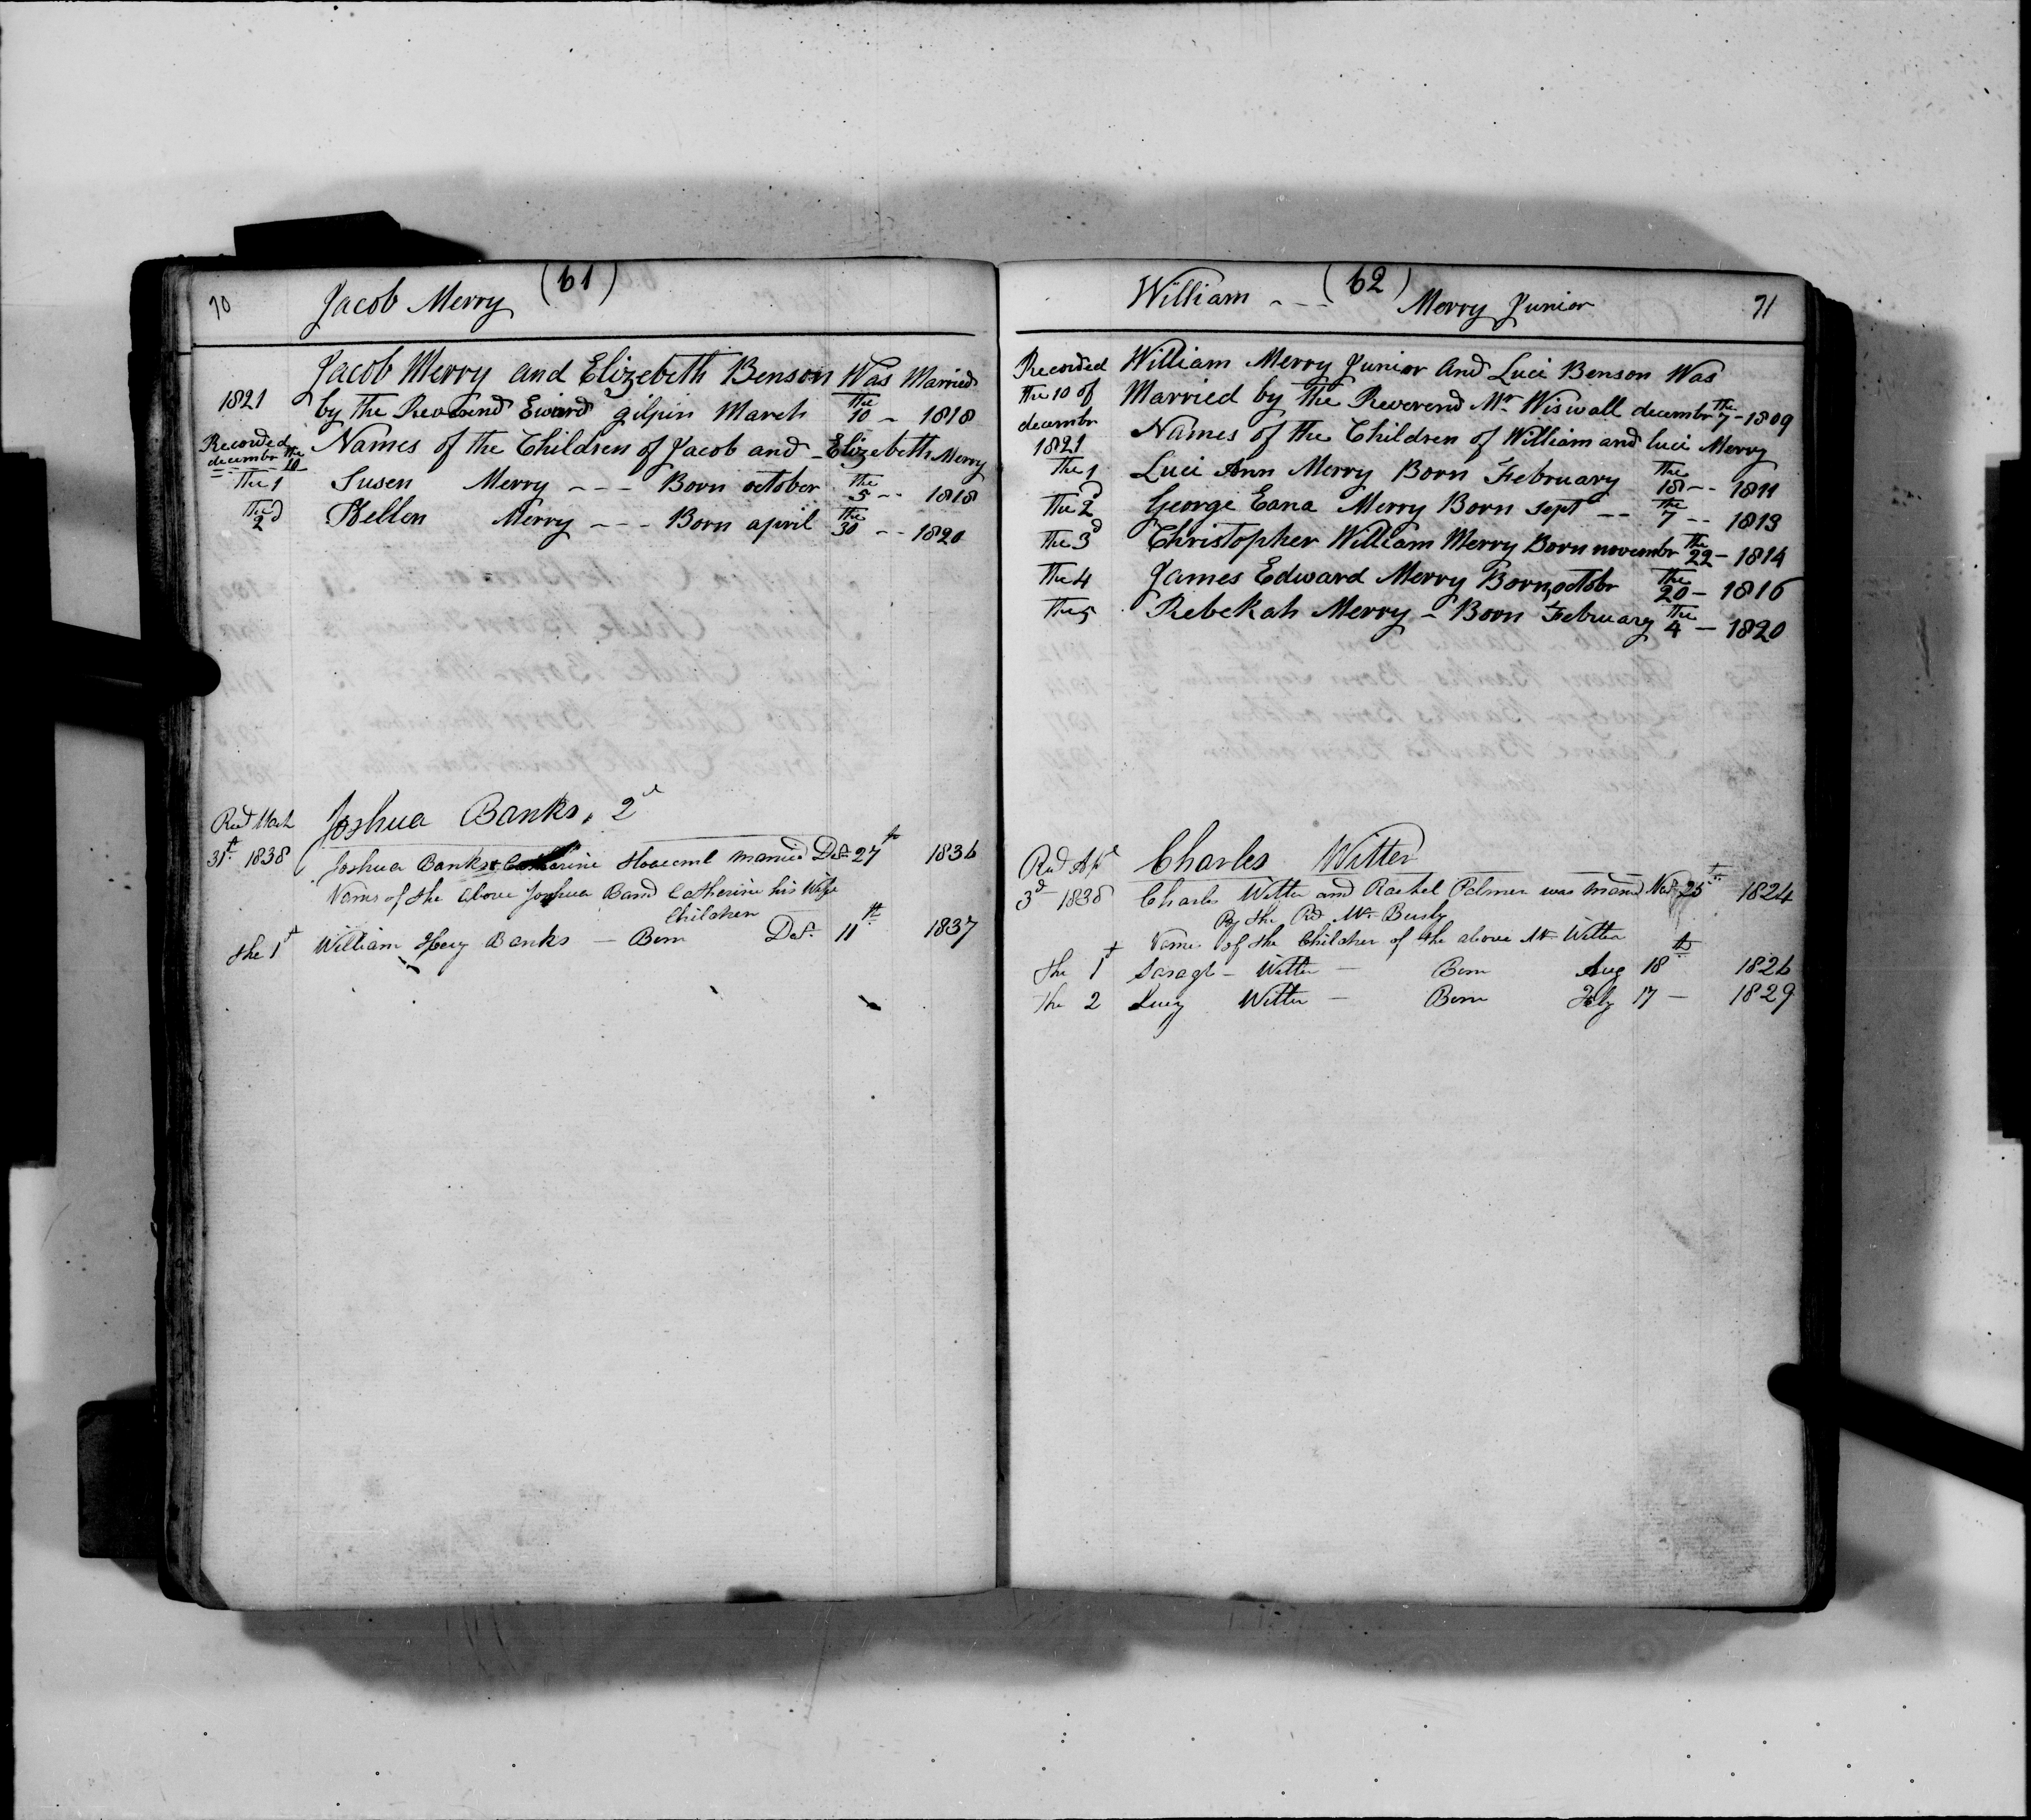 70 Jacob Merry (61)
Jacob Merry and Elizebeth Benson Was Married
1821 by the Reverend Edward gilpin March the 10 - 1818
Recorded decembr the 10 Names of the Children of Jacob and - Elizebeth Merry
The 1 Susen Merry - - - Born october the 5 - - 1818
The 2d Hellen Merry - - - Born april the 30 - - 1820
Joshua Banks, 2d
Recd March
31st 1838 Joshua Banks & Catharine married Dec 27th 1836
Names of the above Joshua B and Catherine his Wife
Children
the 1st William Henry Banks - Born Dec. 11th 1837
William - - - (62) Merry Junior 71
Recorded William Merry Junior And Luci Benson Was
the 10 of Married by the Reverend Mr. Wiswall decembr the 7 - 1809
decembr Names of the Children of William and luci Merry
1821
The 1 Luci Ann Merry Born February the 18 - - 1811
The 2d George Eana Merry Born sept - - the 7 - - 1813
The 3d Christopher William Merry Born novembr the 22 - 1814
The 4 James Edward Merry Born octobr the 20 - 1816
The 5 Rebekah Merry - Born February the 4 - 1820
Charles Witter
Recd Apl
3d 1838 Charles Witter and Rachel Palmer was married Nov 25th 1824
By the Rd Mr.
Names of the Children of the above Mr. Witter
the 1st Witter - Born Aug 18th 1826
the 2 Lucy Witter - Born 17 - 1829